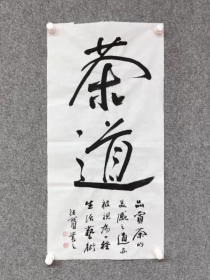 茶道
品賞茶的
美感之道亦
被視為一種
生活藝術